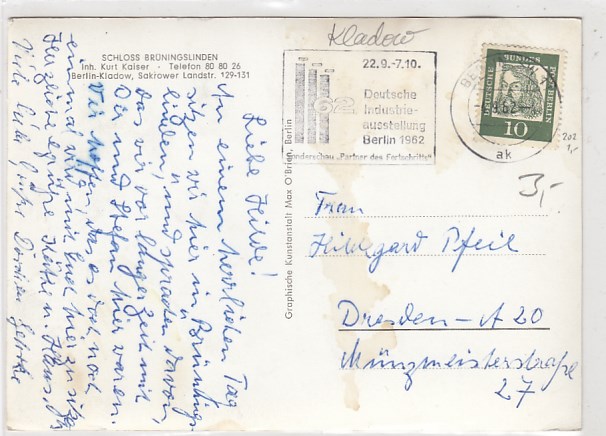 Kladow
SCHLOSS BRÜNINGSLINDEN
Inh. Kurt Kaiser · Telefon 80 80 26
Berlin-Kladow, Sakrower Landstr. 129-131
Liebe Hilde!
An einem herrlichen Tag
sitzen wir hier in Brünings-
linden, und sprachen davon,
das wir vor langer Zeit mit
Dir und Stefan hier waren.
Wir hoffen, das es doch noch
einmal wird mit Euch hier zu sitzen
Herzliche Grüße Käthe u. Klaus.
Viele liebe Grüße
Graphische Kunstanstalt Max O'Brien, Berlin
22.9.-7.10.
62
Deutsche
Industrie-
ausstellung
Berlin 1962
Sonderschau „Partner des Fortschritts"
BE
9.62
ak
DEUTSCHE BUNDESPOST BERLIN
10
202
1,-
3,-
Frau
Hildegard Pfeil
Dresden-A 20
Münzmeisterstraße
27